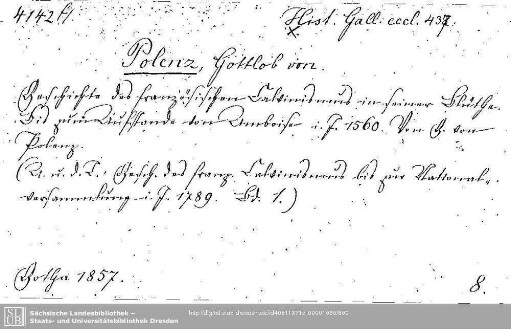 4142 f)
Hist. Gall. eccl. 437.
Polenz, Gottlob von.
Geschichte des französischen Calvinismus in seiner Blüthe.
Bis zum Aufstande von Amboise i. J. 1560. Von G. von
Polenz.
(A. u. d. T.: Gesch. des franz. Calvinismus bis zur National-
versammlung i. J. 1789. Bd. 1.)
Gotha 1857.
8.
SLUB
Sächsische Landesbibliothek –
Staats- und Universitätsbibliothek Dresden